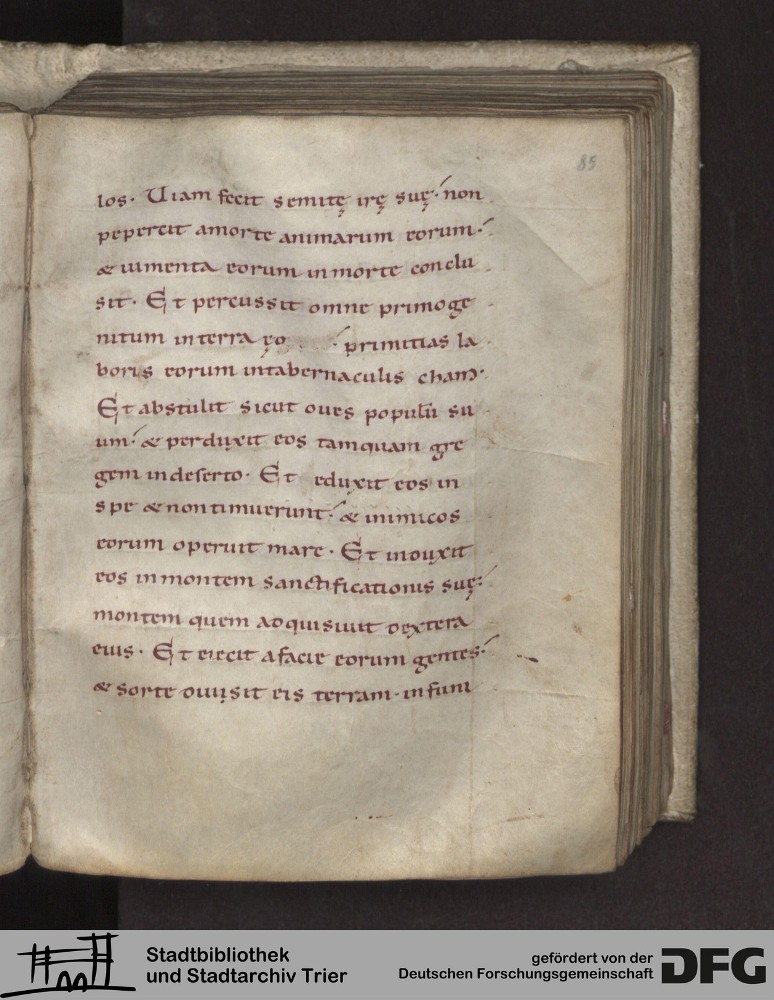 85
los· Uiam fecit semitę irę suę·́ non
pepercit amorte animarum eorum·́
& iumenta eorum inmorte conclu
sit· Et percussit omne primoge
nitum interra ·́ primitias la
boris eorum intabernaculis cham·
Et abstulit sicut oues populū su
um·́ & perduxit eos tamquam gre
gem indeserto· Et eduxit eos in
spe & nontimuerunt·́ & inimicos
eorum operuit mare· Et induxit
eos inmontem sanctificationis suę·́
montem quem adquisiuit dextera
eius· Et eiecit afacie eorum gentes·́
& sorte diuisit eis terram· infuni
Stadtbibliothek
und Stadtarchiv Trier
gefördert von der
Deutschen Forschungsgemeinschaft
DFG